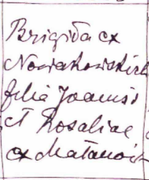 Brigida ex
Nowakowskich
filia Joannis
et Rosaliae
ex Matanow